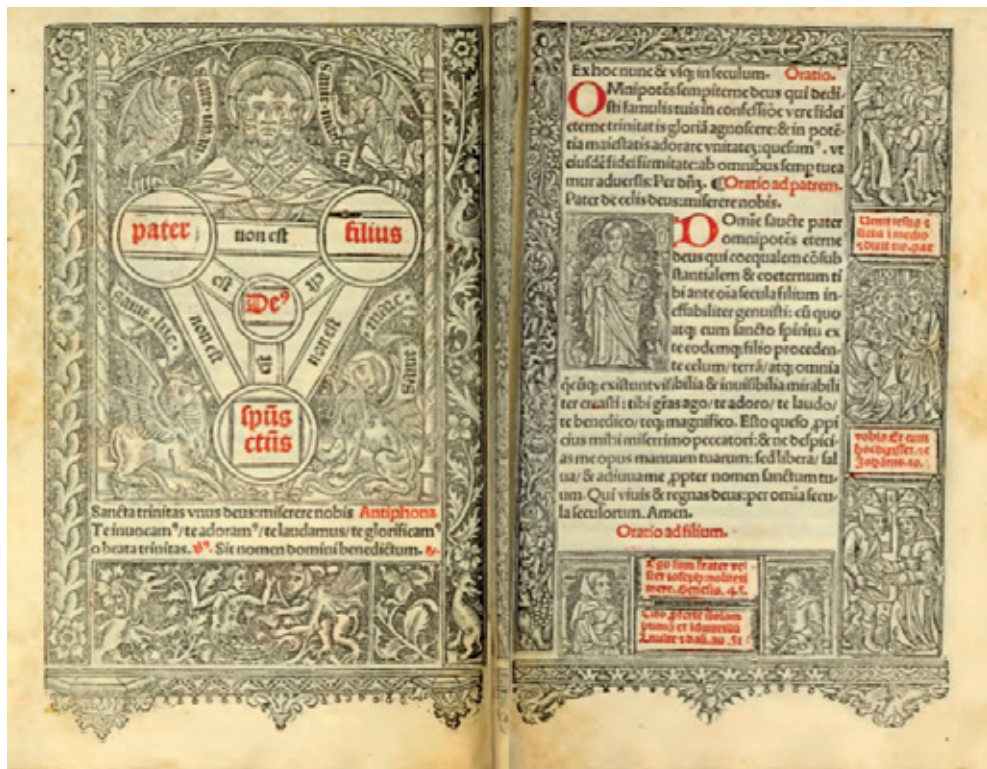 pater
non est
filius
est
De⁹
non est
non est
est
spũs
ctũs
Sancta trinitas vnus deus: miserere nobis Antiphona
Te inuocam⁹/te adoram⁹/te laudamus/te glorificam⁹
o beata trinitas. Sit nomen domini benedictum.
Ex hoc nunc & vsq; in seculum. Oratio.
OMnipotẽs sempiterne deus qui dedi-
sti famulis tuis in confessiõe vere fidei
eterne trinitatis gloriã agnoscere: & in potẽ-
tia maiestatis adorare vnitatẽ: quesum⁹. vt
eiusdẽ fidei firmitate: ab omnibus semp tuea
mur aduersis: Per dñȝ. Oratio ad patrem.
Pater de celis deus: miserere nobis.
DOmine sancte pater
omnipotẽs eterne
deus qui coequalem cõsub
stantialem & coeternum ti
bi ante oĩa secula filium in-
effabiliter genuisti: cũ quo
atq; cum sancto spiritu ex
te eodemq; filio proceden-
te celum/terrã/atq; omnia
q̃cũq; existunt visibilia & inuisibilia mirabili
ter creasti: tibi gr̃as ago/te adoro/te laudo/
te benedico/teq; magnifico. Esto queso ꝓpi
cius mihi miserrimo peccatori: & ne despici-
as me opus manuum tuarum: sed libera/sal
ua/& adiuua me ꝓpter nomen sanctum tu-
um. Qui viuis & regnas deus: per omĩa secu
la seculorum. Amen.
Oratio ad filium.
Ego sum frater ve-
ster ioseph: nolite ti
mere. Genesis. 45.